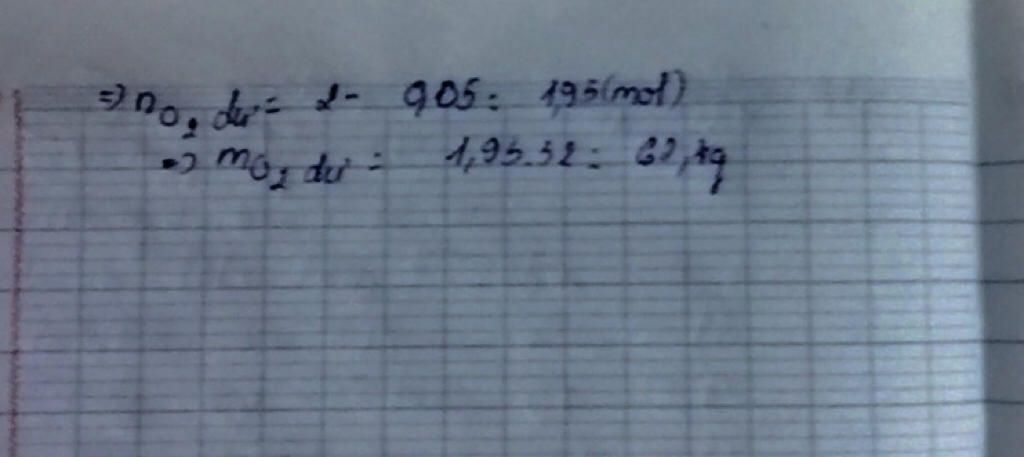 => nO2 dư = 2 - 0,05 = 1,95 (mol)
=> mO2 dư = 1,95.32 = 62,4g